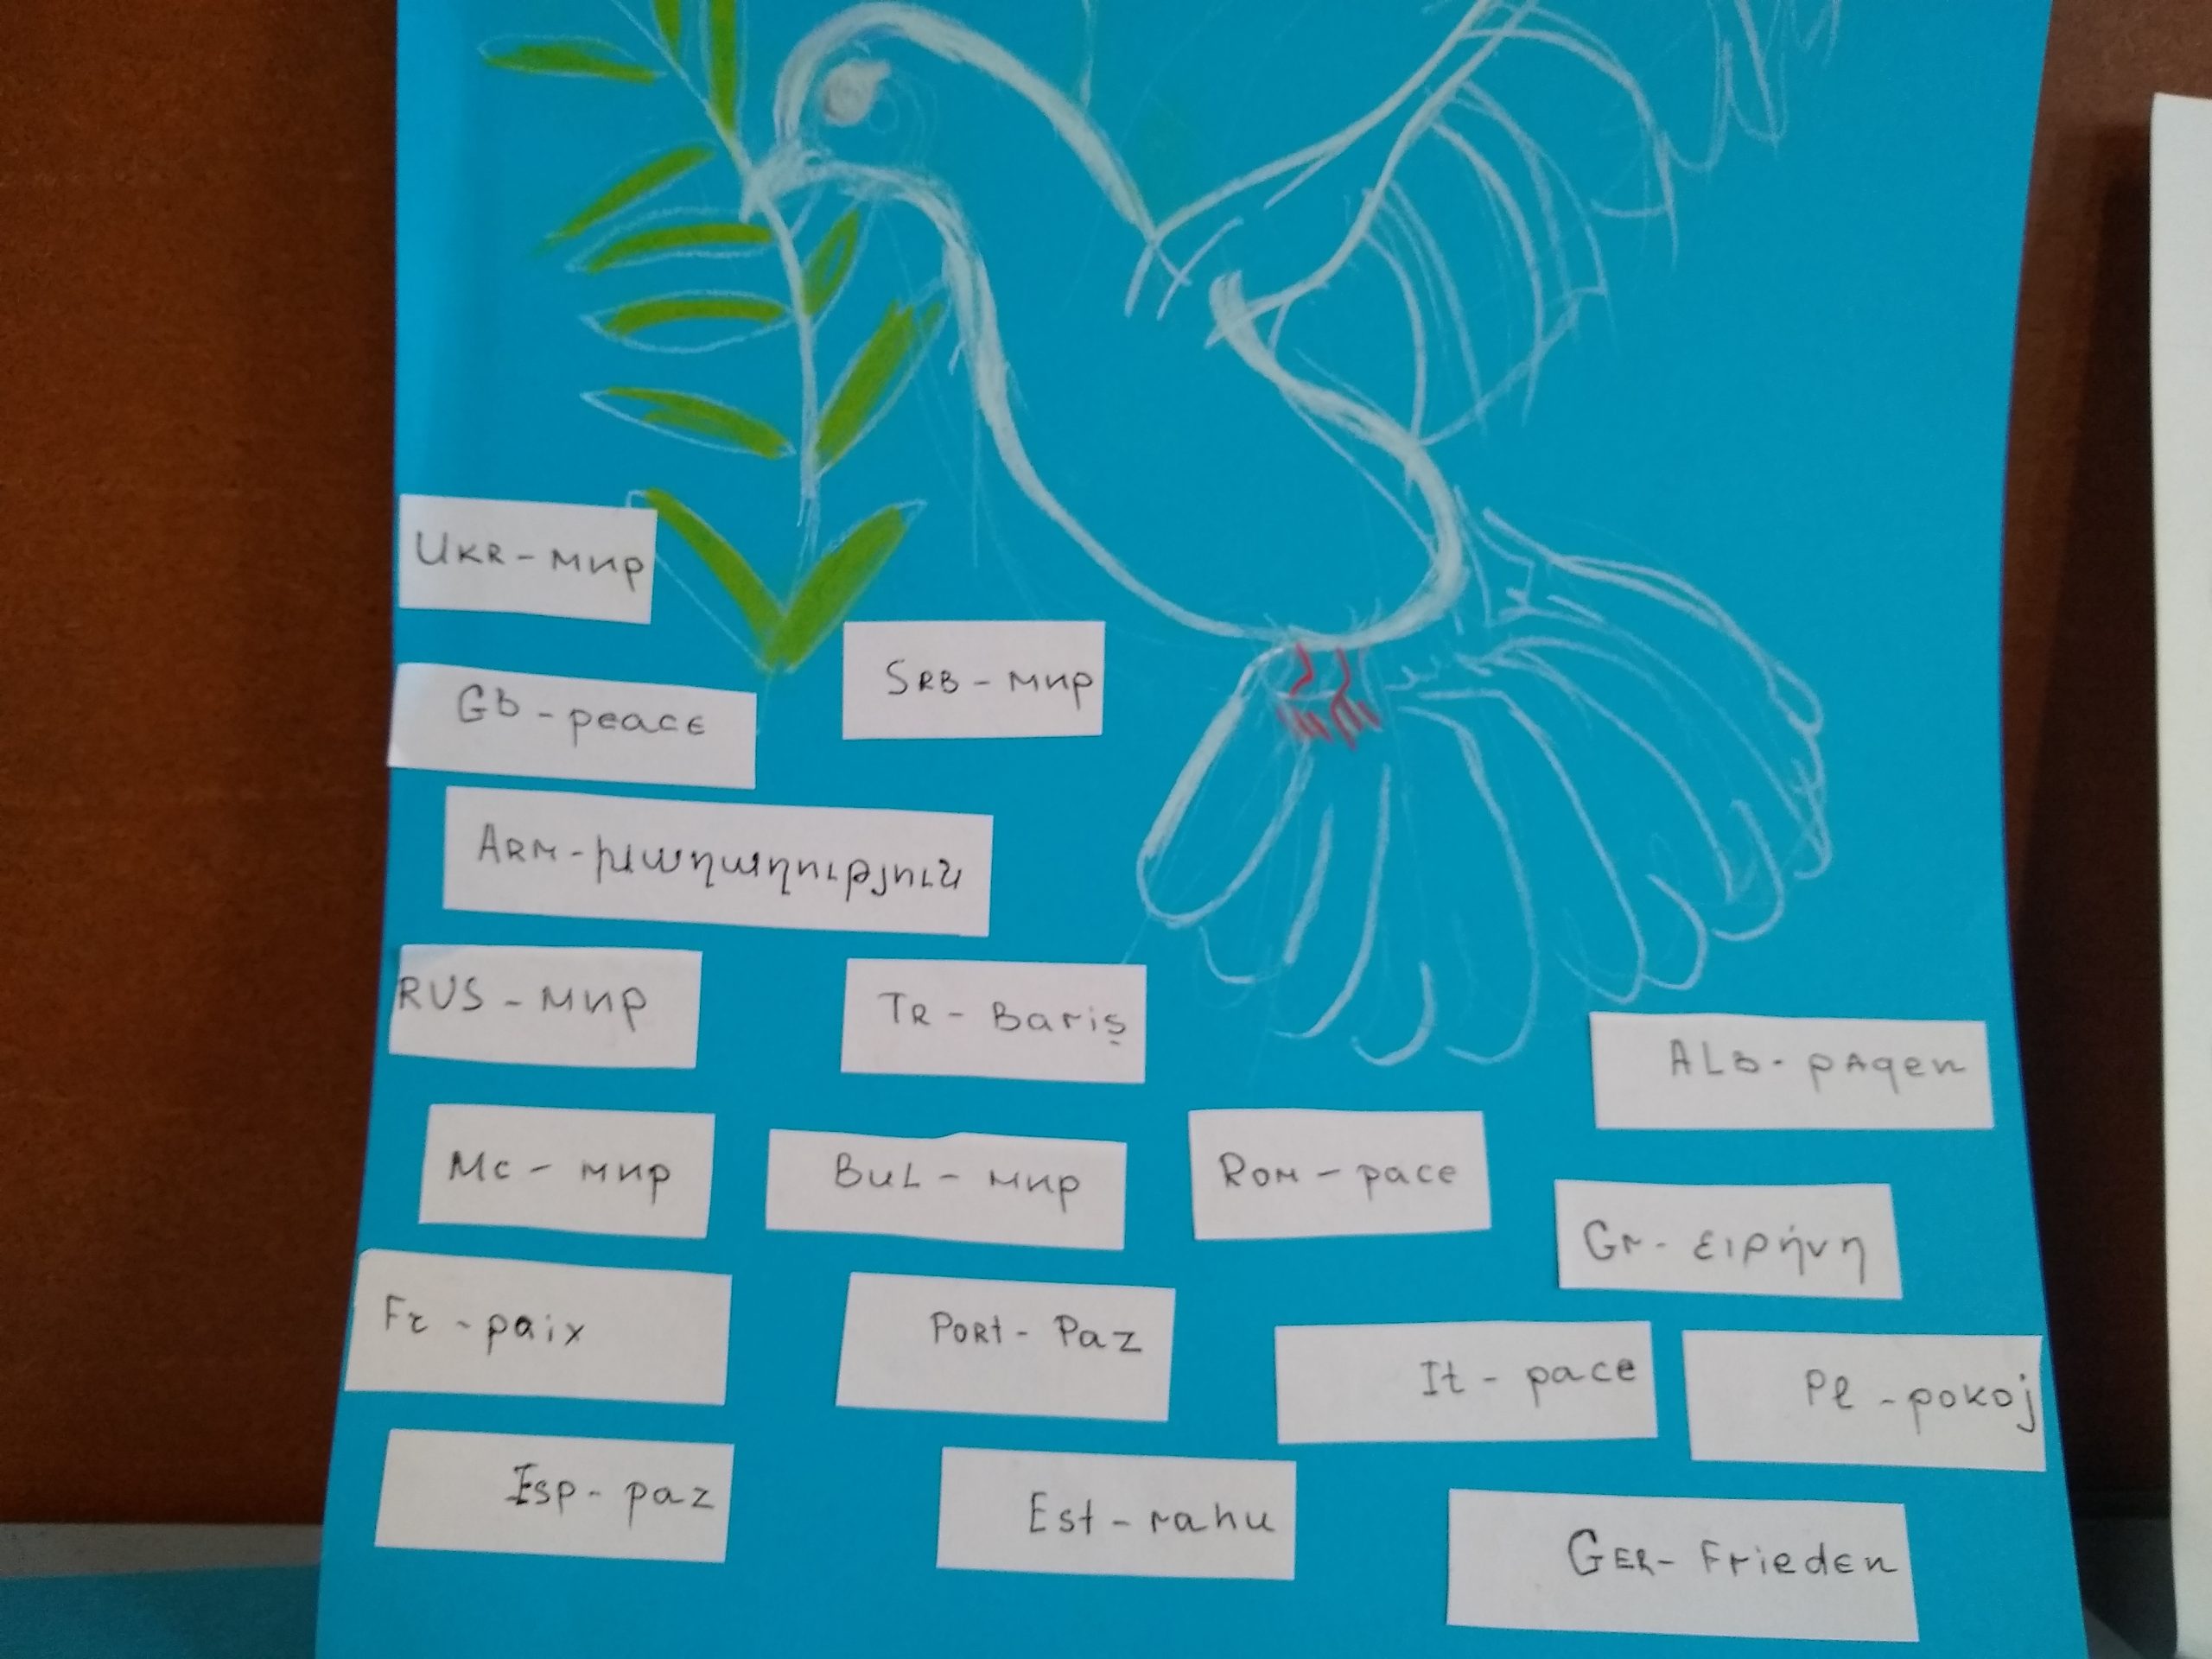 UKR - мир
SRB - мир
Gb - peace
ARM - խաղաղություն
RUS - мир
TR - Bariş
ALB - pAqen
Mc - мир
BUL - мир
ROM - pace
Gr - ειρήνη
Fr - paix
PORt - Paz
It - pace
Pl - pokoj
Esp - paz
Est - rahu
GER - Frieden